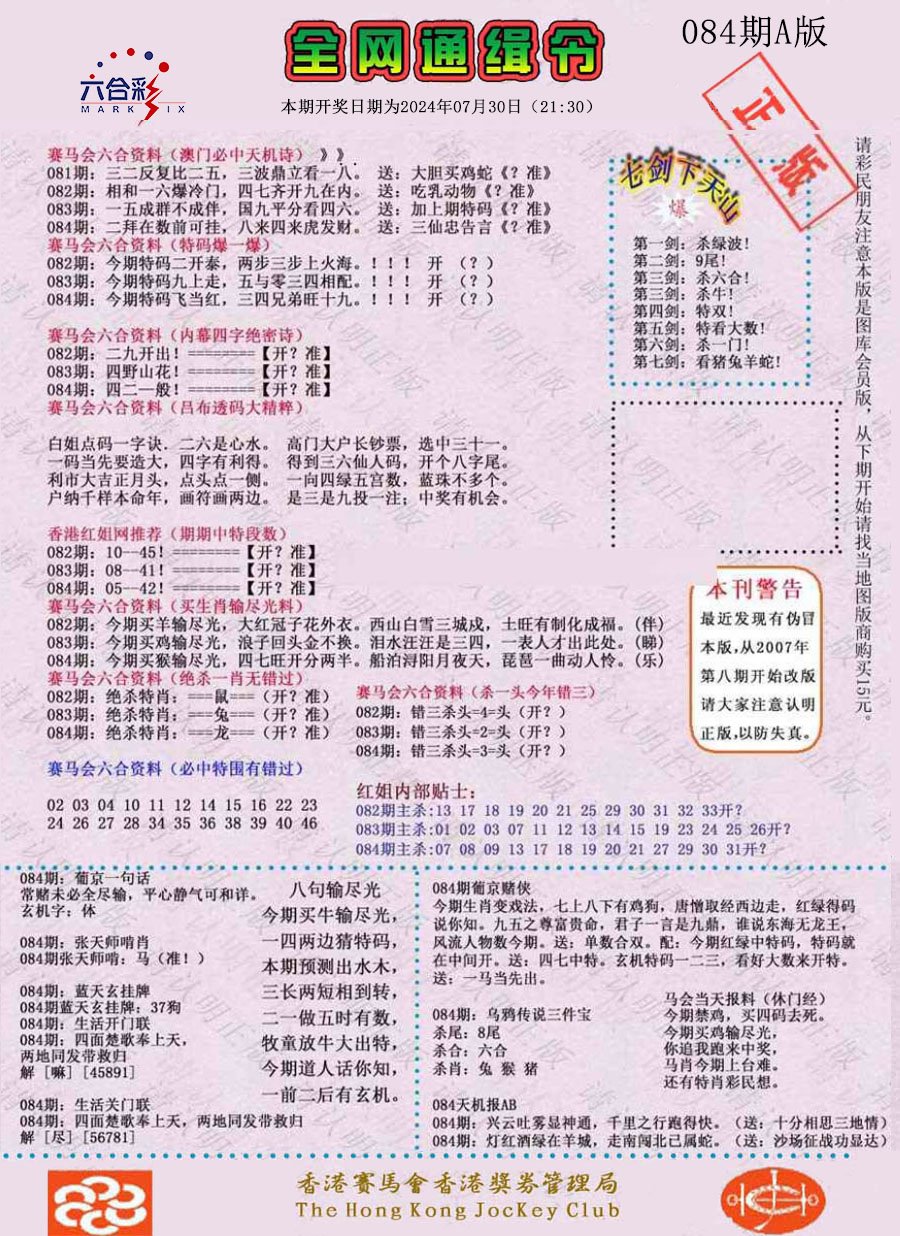 全网通缉令
084期A版
六合彩
MARK SIX
本期开奖日期为2024年07月30日（21:30）
正版
赛马会六合资料（澳门必中天机诗）》》.
081期：三二反复比二五，三波鼎立看一八。 送：大胆买鸡蛇《？准》
082期：相和一六爆冷门，四七齐开九在内。 送：吃乳动物《？准》
083期：一五成群不成伴，国九平分看四六。 送：加上期特码《？准》
084期：二拜在数前可挂，八来四来虎发财。 送：三仙忠告言《？准》
赛马会六合资料（特码爆一爆）
082期：今期特码二开泰，两步三步上火海。！！！ 开 （？）
083期：今期特码九上走，五与零三四相配。！！！ 开 （？）
084期：今期特码飞当红，三四兄弟旺十九。！！！ 开 （？）
赛马会六合资料（内幕四字绝密诗）
082期：二九开出！========【开？准】
083期：四野山花！========【开？准】
084期：四二一般！========【开？准】
赛马会六合资料（吕布透码大精粹）
白姐点码一字诀．二六是心水。 高门大户长钞票，选中三十一。
一码当先要造大，四字有利得。 得到三六仙人码，开个八字尾。
利市大吉正月头，点头点一侧。 一向四绿五宫数，蓝珠不多个。
户纳千样本命年，画符画两边。 是三是九投一注；中奖有机会。
香港红姐网推荐（期期中特段数）
082期：10--45！========【开？准】
083期：08--41！========【开？准】
084期：05--42！========【开？准】
赛马会六合资料（买生肖输尽光料）
082期：今期买羊输尽光，大红冠子花外衣。西山白雪三城戍，土旺有制化成福。(伴)
083期：今期买鸡输尽光，浪子回头金不换。泪水汪汪是三四，一表人才出此处。(睇)
084期：今期买猴输尽光，四七旺开分两半。船泊浔阳月夜天，琵琶一曲动人怜。(乐)
赛马会六合资料（绝杀一肖无错过）
082期：绝杀特肖：===鼠===（开？准）
083期：绝杀特肖：===兔===（开？准）
084期：绝杀特肖：===龙===（开？准）
赛马会六合资料（杀一头今年错三）
082期：错三杀头=4=头（开？）
083期：错三杀头=2=头（开？）
084期：错三杀头=3=头（开？）
赛马会六合资料（必中特围有错过）
02 03 04 10 11 12 14 15 16 22 23
24 26 27 28 34 35 36 38 39 40 46
红姐内部贴士：
082期主杀:13 17 18 19 20 21 25 29 30 31 32 33开？
083期主杀:01 02 03 07 11 12 13 14 15 19 23 24 25 26开？
084期主杀:07 08 09 13 17 18 19 20 21 27 29 30 31开？
七剑下天山
爆
第一剑：杀绿波！
第二剑：9尾！
第三剑：杀六合！
第三剑：杀牛！
第四剑：特双！
第五剑：特看大数！
第六剑：杀一门！
第七剑：看猪兔羊蛇！
本刊警告
最近发现有伪冒
本版,从2007年
第八期开始改版
请大家注意认明
正版,以防失真。
请彩民朋友注意本版是图库会员版，从下期开始请找当地图版商购买15元。
084期：葡京一句话
常赌未必全尽输，平心静气可和详。
玄机字：体
084期：张天师啃肖
084期张天师啃：马（准！）
084期：蓝天玄挂牌
084期蓝天玄挂牌：37狗
084期：生活开门联
084期：四面楚歌奉上天，
两地同发带救归
解［嘛］[45891]
084期：生活关门联
084期：四面楚歌奉上天，两地同发带救归
解［尽］[56781]
八句输尽光
今期买牛输尽光，
一四两边猜特码，
本期预测出水木，
三长两短相到转，
二一做五时有数，
牧童放牛大出特，
今期道人话你知，
一前二后有玄机。
084期葡京赌侠
今期生肖变戏法，七上八下有鸡狗，唐憎取经西边走，红绿得码
说你知。九五之尊富贵命，君子一言是九鼎，谁说东海无龙王，
风流人物数今期。送：单数合双。配：今期红绿中特码，特码就
在中间开。送：四七中特。玄机特码一二三，看好大数来开特。
送：一马当先出。
084期：乌鸦传说三件宝
杀尾：8尾
杀合：六合
杀肖：兔 猴 猪
马会当天报料（休门经）
今期禁鸡，买四码去死。
今期买鸡输尽光，
你追我跑来中奖，
马肖今期上台难。
还有特肖彩民想。
084天机报AB
084期：兴云吐雾显神通，千里之行跑得快。（送：十分相思三地情）
084期：灯红酒绿在羊城，走南闯北已属蛇。（送：沙场征战功显达）
香港賽馬會香港獎券管理局
The Hong Kong JocKey Club